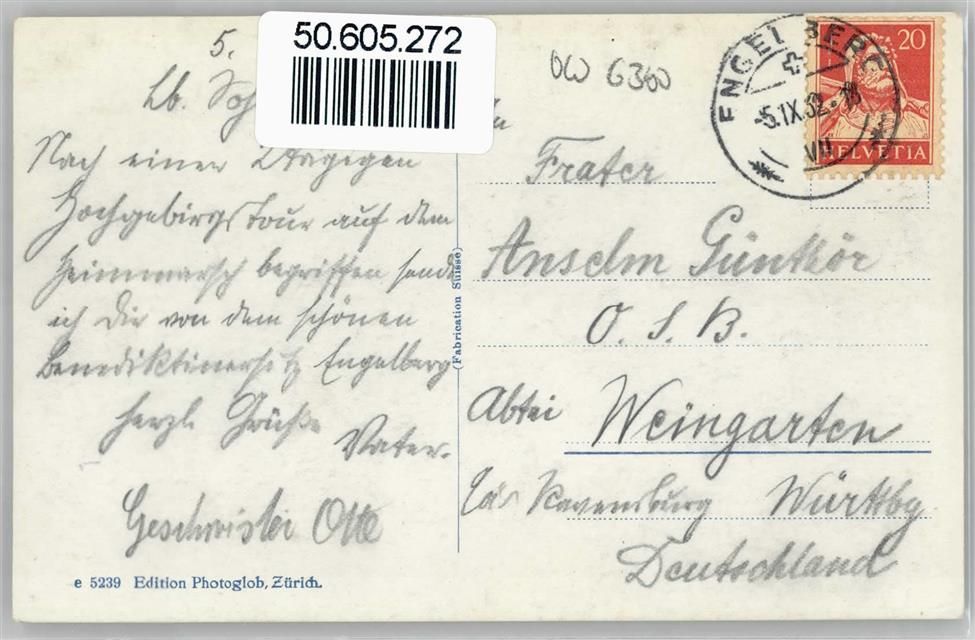 50.605.272
5.
Lb.
Nach einer 4tägigen
Hochgebirgstour auf dem
Heimmarsch begriffen sende
ich Dir von dem schönen
Benediktinersitz Engelberg
herzl. Grüße
Vater.
Geschwister Otte
e 5239 Edition Photoglob, Zürich.
(Fabrication Suisse)
OW 6300
ENGELBERG
-5.IX.32.-18
VII
20
HELVETIA
Frater
Anselm Günthör
O. S. B.
Abtei Weingarten
bei Ravensburg Württbg
Deutschland